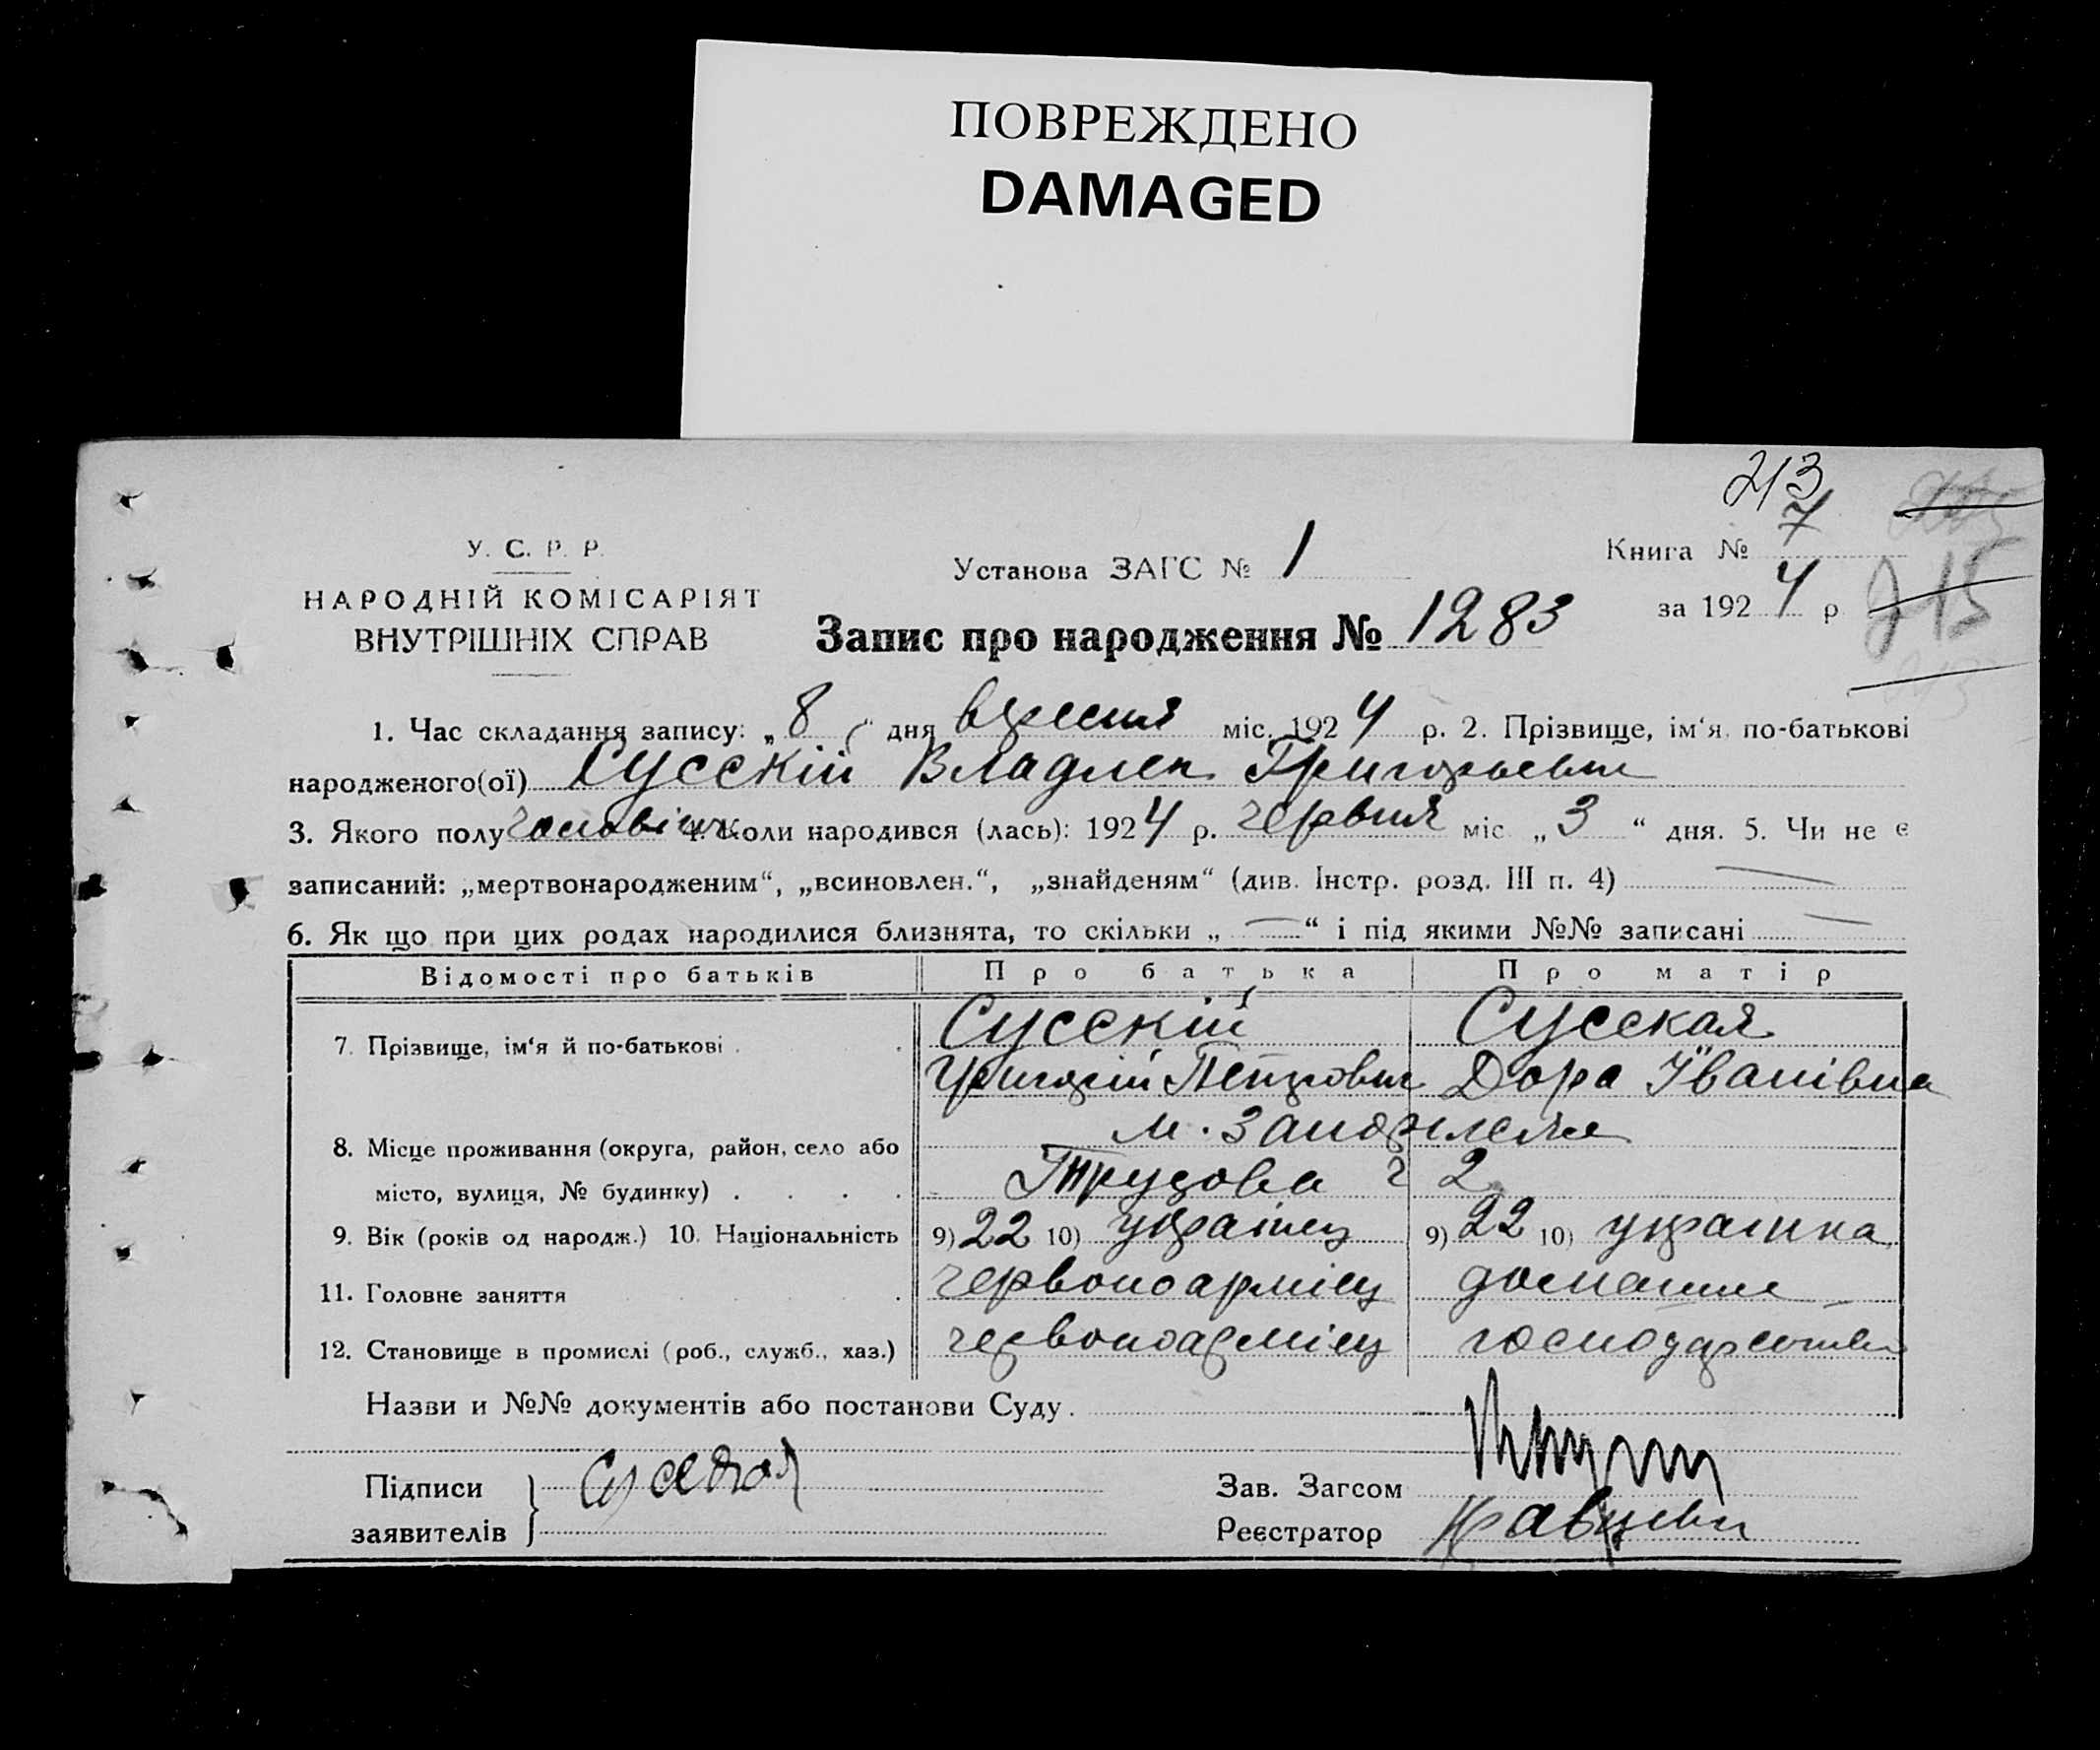 ПОВРЕЖДЕНО
DAMAGED
213
У. С. Р. Р.
НАРОДНІЙ КОМІСАРІЯТ
ВНУТРІШНІХ СПРАВ
Установа ЗАГС № 1
Книга № 7
за 1924 р
215
Запис про народження № 1283
1. Час складання запису: „8“ дня вересня міс. 1924 р. 2. Прізвище, ім'я, по-батькові
народженого(ої) Сусскій Владлен Григорьевич
3. Якого полу чоловіч. 4. Коли народився (лась): 1924 р. червня міс „3“ дня. 5. Чи не є
записаний: „мертвонародженим“, „всиновлен.“, „знайденям“ (див. Інстр. розд. III п. 4)
6. Як що при цих родах народилися близнята, то скільки „—“ і під якими №№ записані —
Відомості про батьків Про батька Про матір
7. Прізвище, ім'я й по-батькові . Сусскій Сусская
Григорій Петрович Дора Іванівна
8. Місце проживання (округа, район, село або м. Запоріжже
місто, вулиця, № будинку) . . . . Трудова 2
9. Вік (років од народж.) 10. Національність 9) 22 10) українец 9) 22 10) українка
11. Головне заняття червоноармієц домашне
12. Становище в промислі (роб., служб., хаз.) червоноармієц господарство
Назви и №№ документів або постанови Суду.
Підписи
заявителів Сусская
Зав. Загсом
Реєстратор